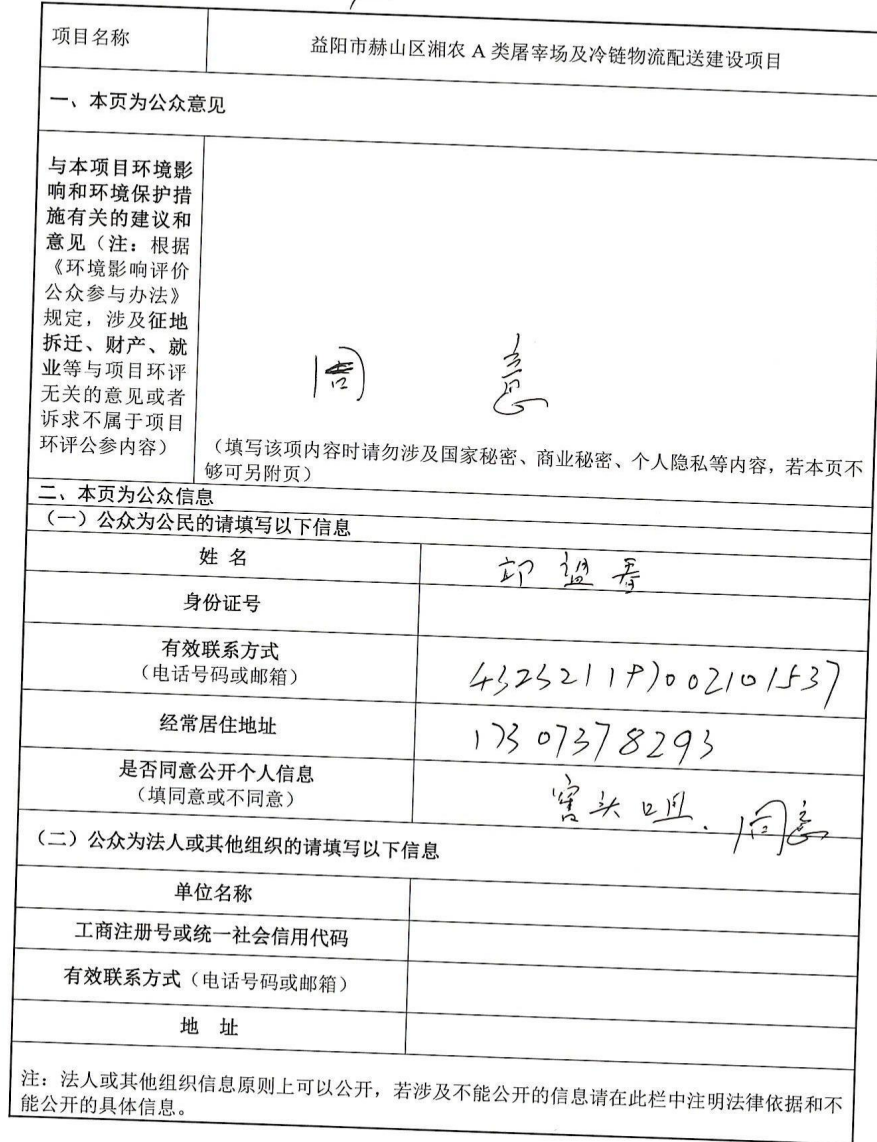 项目名称
益阳市赫山区湘农 A 类屠宰场及冷链物流配送建设项目
一、本页为公众意见
与本项目环境影
响和环境保护措
施有关的建议和
意见（注：根据
《环境影响评价
公众参与办法》
规定，涉及征地
拆迁、财产、就
业等与项目环评
无关的意见或者
诉求不属于项目
环评公参内容）
同 意
（填写该项内容时请勿涉及国家秘密、商业秘密、个人隐私等内容，若本页不
够可另附页）
二、本页为公众信息
（一）公众为公民的请填写以下信息
姓 名
身份证号
有效联系方式
（电话号码或邮箱）
432321197002101537
经常居住地址
17307378293
是否同意公开个人信息
（填同意或不同意）
同意
（二）公众为法人或其他组织的请填写以下信息
单位名称
工商注册号或统一社会信用代码
有效联系方式（电话号码或邮箱）
地 址
注：法人或其他组织信息原则上可以公开，若涉及不能公开的信息请在此栏中注明法律依据和不
能公开的具体信息。